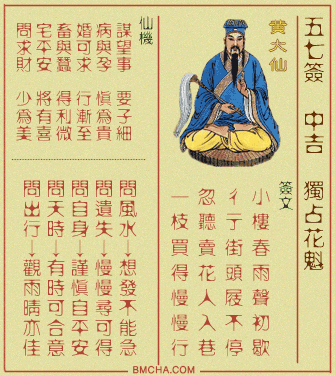 五七簽 中吉 獨占花魁
黃大仙
簽文
小樓春雨聲初歇
彳亍街頭屐不停
忽聽賣花人入巷
一枝買得慢慢行
仙機
謀望事 要子細
病與孕 慎爲貴
婚可求 行漸至
畜與蠶 得利微
宅平安 將有喜
問求財 少爲美
問風水→想發不能急
問遺失→慢慢尋可得
問自身→謹慎自平安
問天時→有時可合意
問出行→觀雨晴亦佳
BMCHA.COM